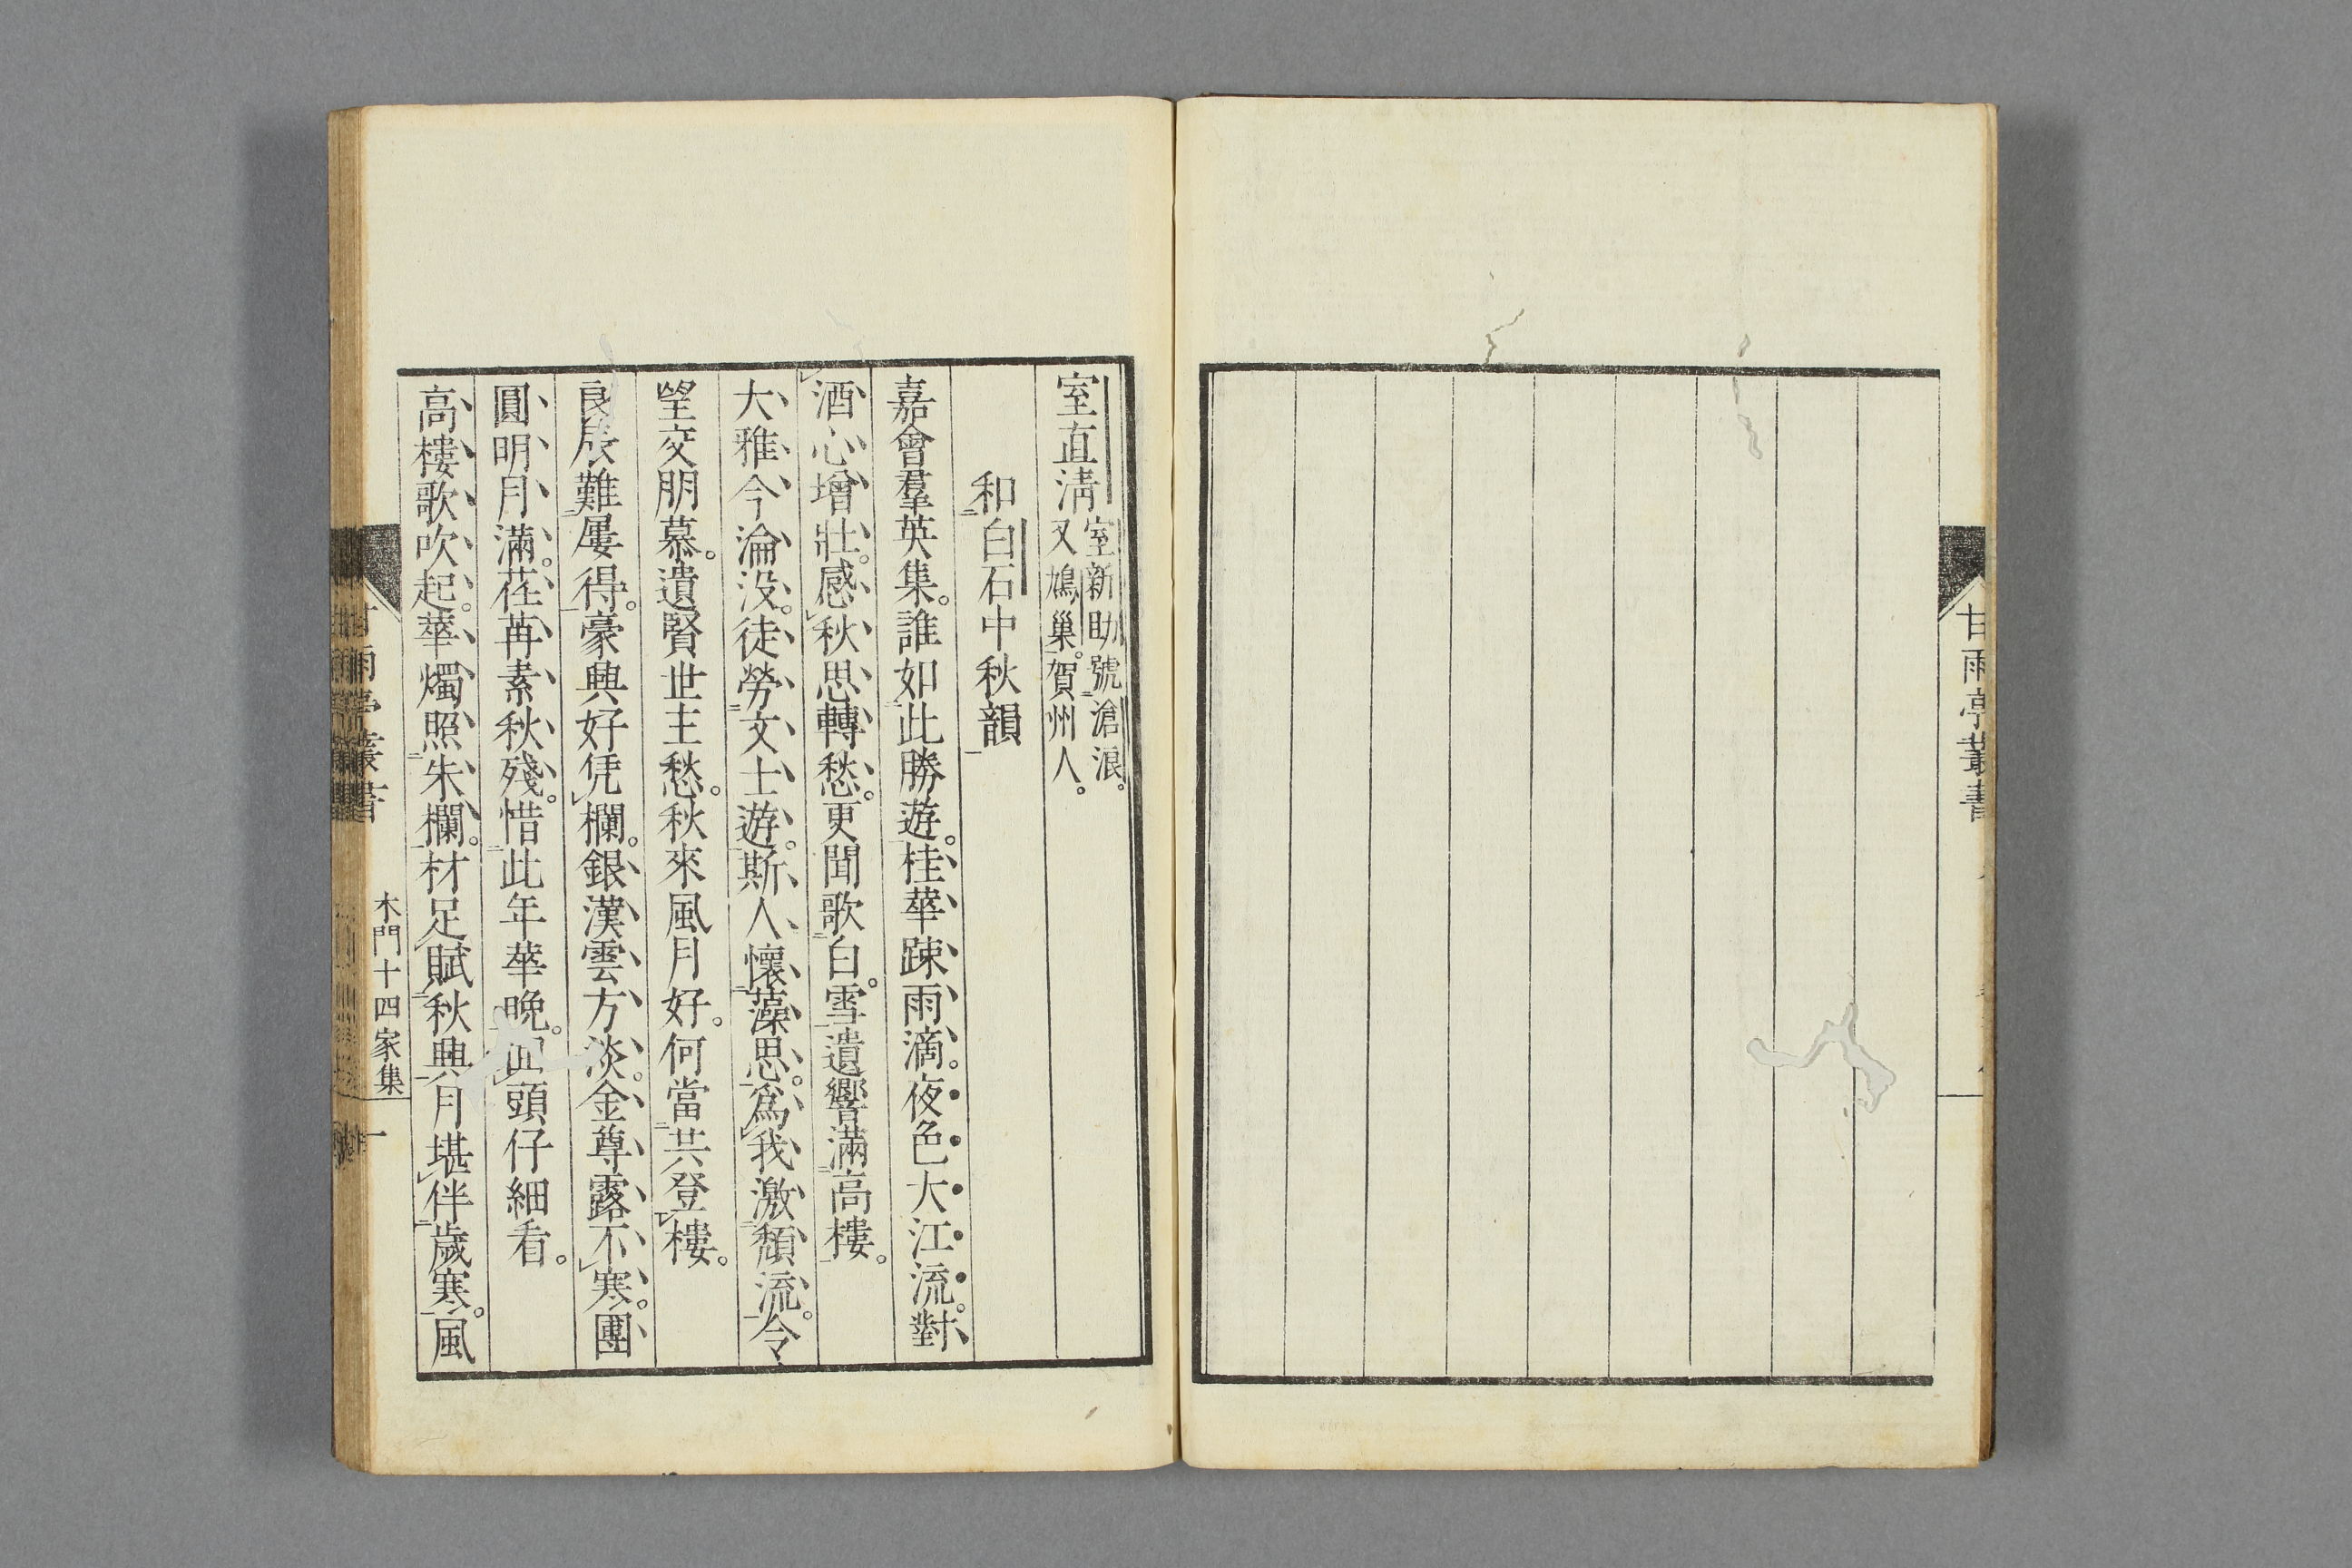 甘雨亭叢書
室直淸
室新助號滄浪。
又鳩巢。賀州人。
和白石中秋韻
嘉會羣英集。誰如此勝遊。桂華疎雨滴。夜色大江流。對
酒心增壯。感秋思轉愁。更聞歌白雪。遺響滿高樓。
大雅今淪没。徒勞文士遊。斯人懷藻思。爲我激頽流。令
望交朋慕。遺賢世主愁。秋來風月好。何當共登樓。
良辰難屢得。豪興好凭欄。銀漢雲方淡。金尊露不寒。團
圓明月滿。荏苒素秋殘。惜此年華晩。回頭仔細看。
高樓歌吹起。華燭照朱欄。材足賦秋興。月堪伴歲寒。風
木門十四家集
一